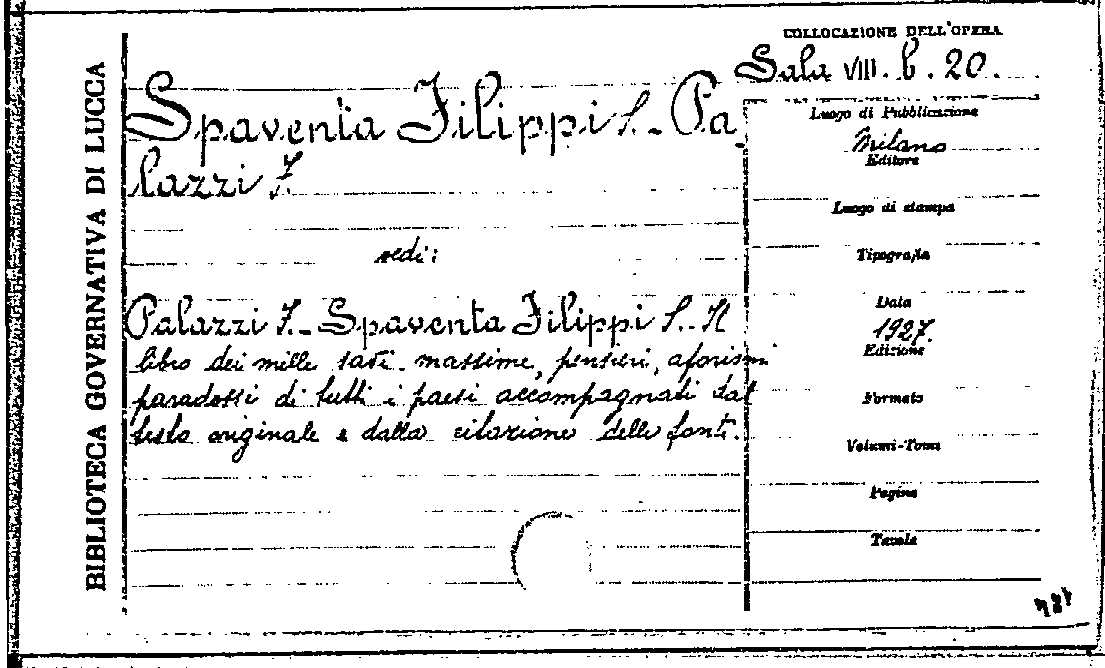 BIBLIOTECA GOVERNATIVA DI LUCCA
COLLOCAZIONE DELL'OPERA
Sala VIII. b. 20.
Spaventa Filippi S. - Pa-
lazzi F.
vedi:
Palazzi F. - Spaventa Filippi S. - Il
libro dei mille savi. massime, pensieri, aforismi
paradossi di tutti i paesi accompagnati dal
testo originale e dalla citazione delle fonti.
Luogo di Pubblicazione
Milano
Editore
Luogo di stampa
Tipografia
Data
1927.
Edizione
Formato
Volumi-Tomi
Pagine
Tavole